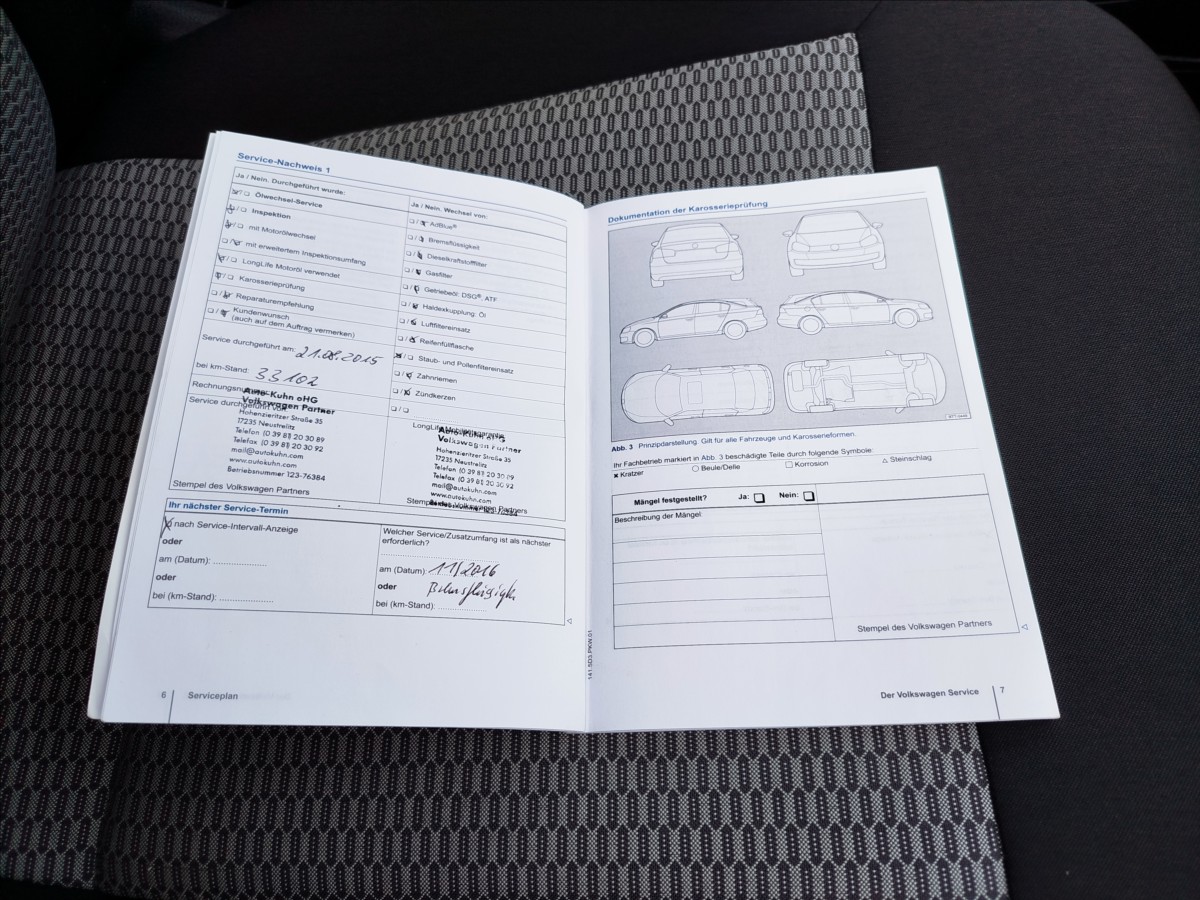 Service-Nachweis 1
Ja / Nein. Durchgeführt wurde:
Ölwechsel-Service
Inspektion
mit Motorölwechsel
mit erweitertem Inspektionsumfang
LongLife Motoröl verwendet
Karosserieprüfung
Reparaturempfehlung
Kundenwunsch
(auch auf dem Auftrag vermerken)
Ja / Nein. Wechsel von:
AdBlue®
Bremsflüssigkeit
Dieselkraftstofffilter
Gasfilter
Getriebeöl: DSG®, ATF
Haldexkupplung: Öl
Luftfiltereinsatz
Reifenfüllflasche
Staub- und Pollenfiltereinsatz
Zahnriemen
Zündkerzen
Service durchgeführt am: 21.08.2015
bei km-Stand: 33102
Auto-Kuhn oHG
Volkswagen Partner
Hohenzieritzer Straße 35
17235 Neustrelitz
Telefon (0 39 81) 20 30 89
Telefax (0 39 81) 20 30 92
mail@autokuhn.com
www.autokuhn.com
Betriebsnummer 123-76384
Stempel des Volkswagen Partners
Volkswagen Partner
Hohenzieritzer Straße 35
17235 Neustrelitz
Telefon (0 39 81) 20 30 89
Telefax (0 39 81) 20 30 92
mail@autokuhn.com
www.autokuhn.com
Stempel des Volkswagen Partners
Ihr nächster Service-Termin
nach Service-Intervall-Anzeige
oder
am (Datum):
oder
bei (km-Stand):
Welcher Service/Zusatzumfang ist als nächster
erforderlich?
am (Datum): 11/2016
oder
bei (km-Stand):
6 Serviceplan
141.5D3.PKW.01
Dokumentation der Karosserieprüfung
Abb. 3 Prinzipdarstellung. Gilt für alle Fahrzeuge und Karosserieformen.
Ihr Fachbetrieb markiert in Abb. 3 beschädigte Teile durch folgende Symbole:
Kratzer Beule/Delle Korrosion Steinschlag
Mängel festgestellt? Ja: Nein:
Beschreibung der Mängel:
Stempel des Volkswagen Partners
Der Volkswagen Service 7